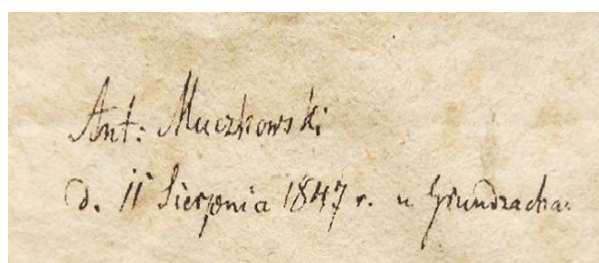 Ant: Muczkowski
d. 11 Sierpnia 1847 r. u Grundzacha: